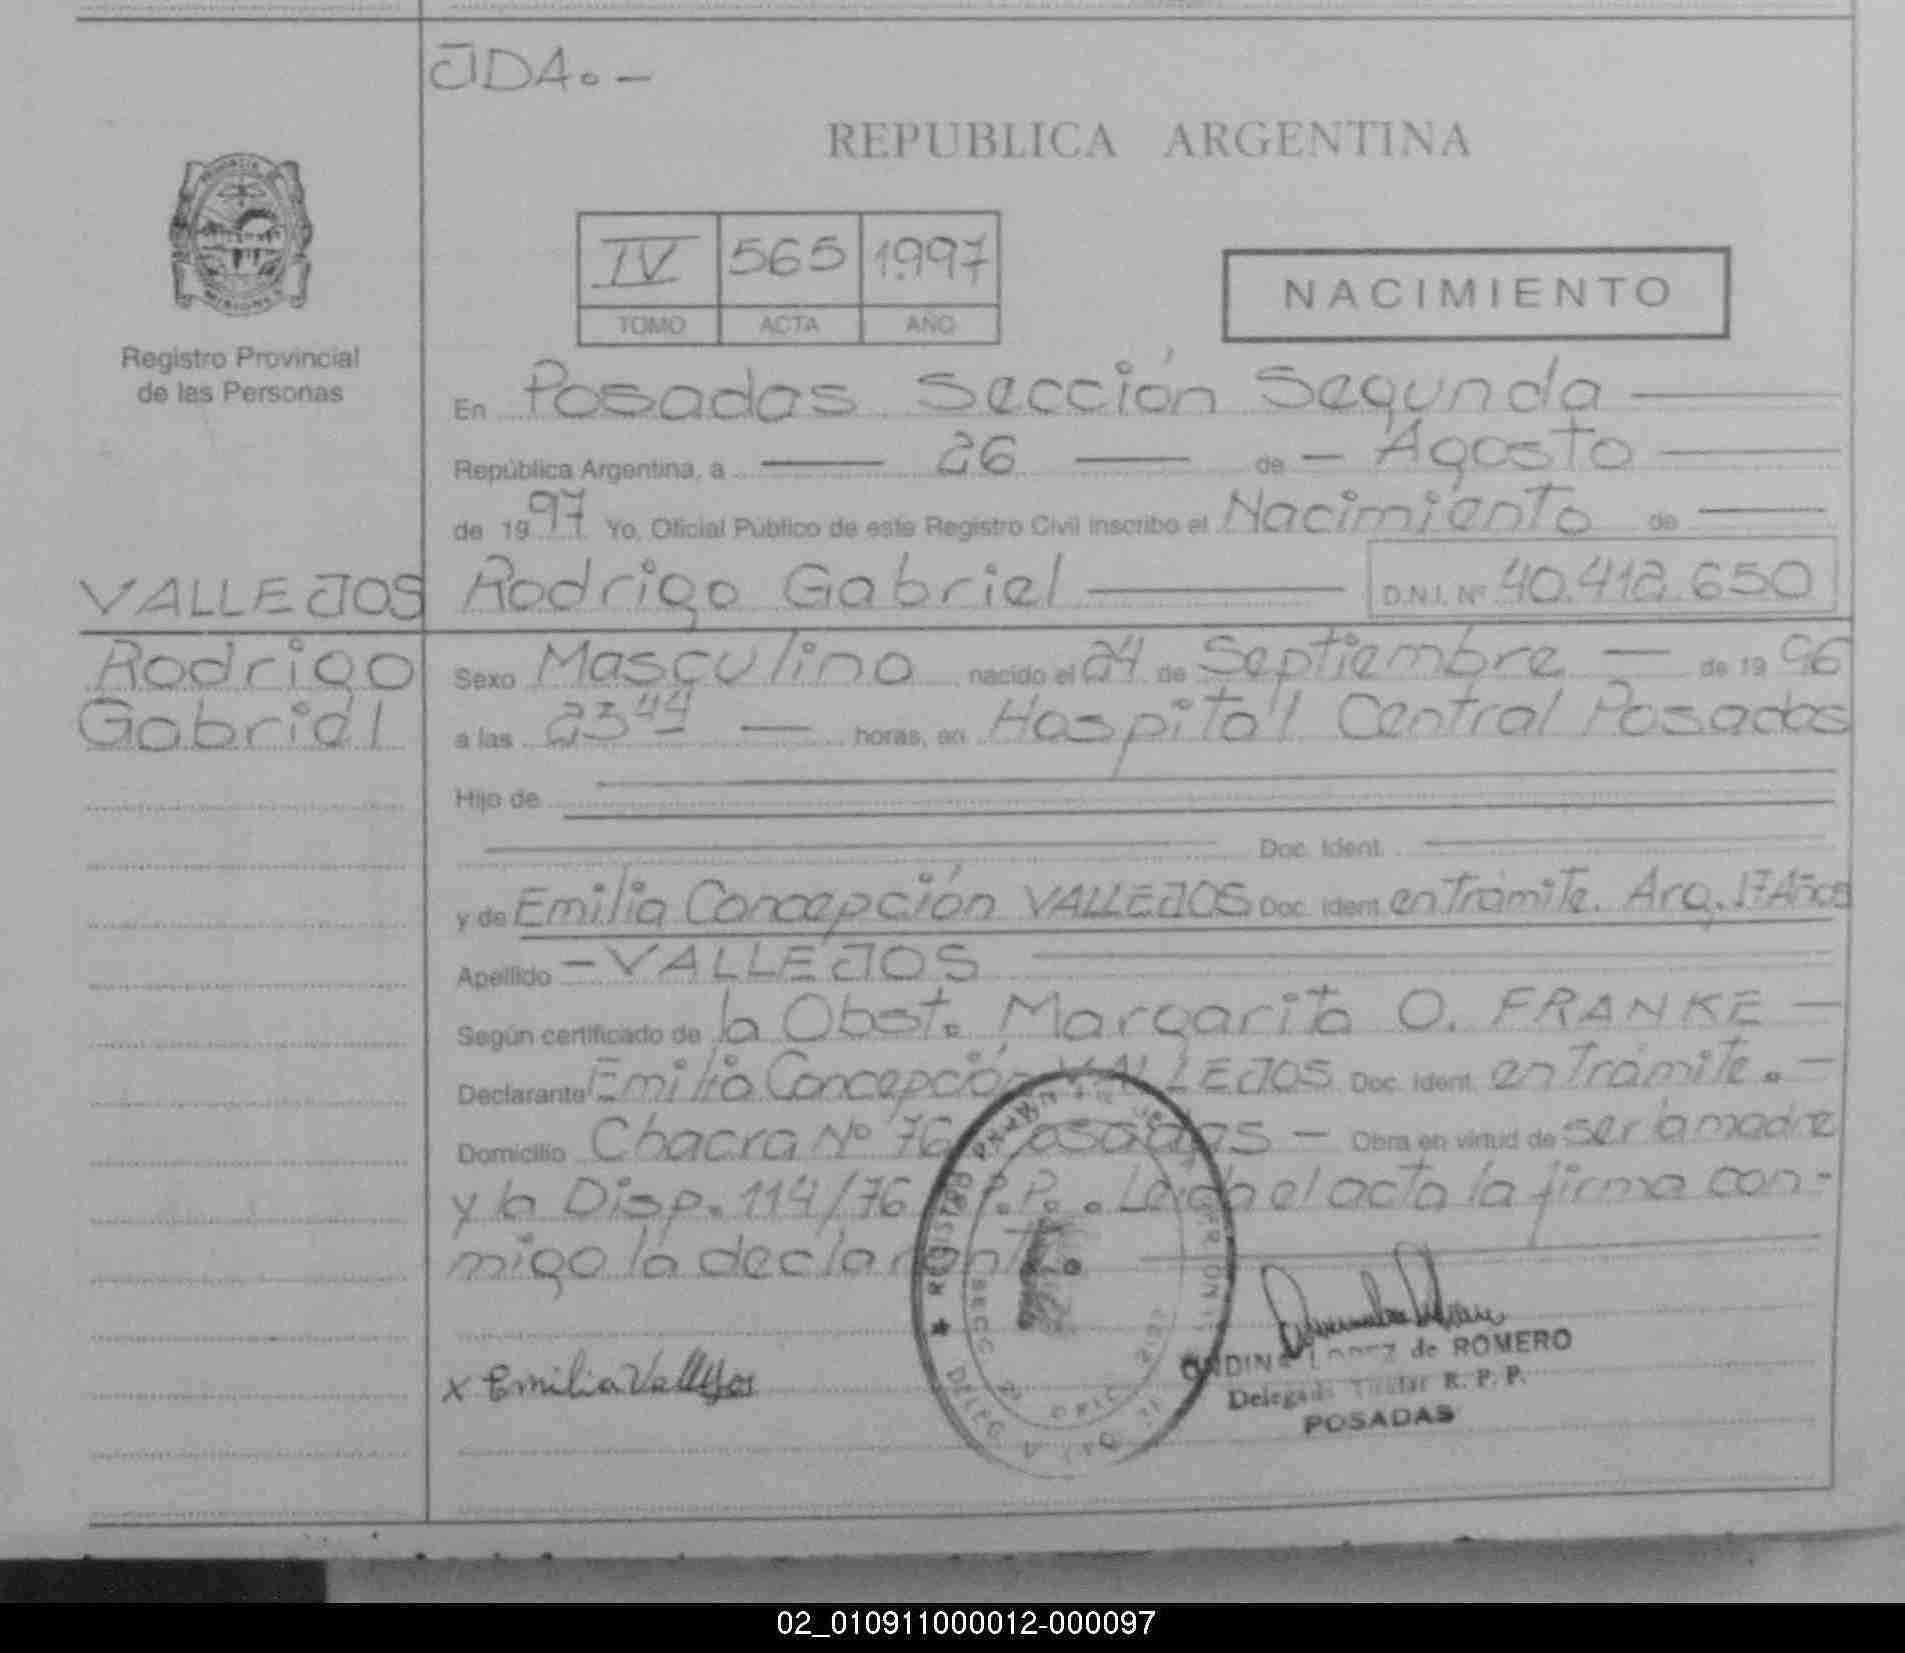 JDA.-
REPUBLICA ARGENTINA
IV 565 1997
TOMO ACTA AÑO
NACIMIENTO
MISIONES
Registro Provincial
de las Personas
En Posadas Sección Segunda
República Argentina, a 26 de - Agosto
de 1997 Yo, Oficial Público de este Registro Civil inscribo el Nacimiento de
VALLEJOS Rodrigo Gabriel D.N.I. Nº 40.412.650
Rodrigo
Gabriel
Sexo Masculino nacido el 24 de Septiembre - de 1996
a las 23 44 - horas, en Hospital Central Posadas
Hijo de
Doc. Ident.
y de Emilia Concepción VALLEJOS Doc. Ident. en Trámite. Arg. 17 Años
Apellido - VALLEJOS
Según certificado de la Obst. Margarita O. FRANKE -
Declarante Emilia Concepción VALLEJOS Doc. Ident. en Trámite. -
Domicilio Chacra Nº 76 Posadas - Obra en virtud de ser la madre
y la Disp. 114/76 P.P.. Leída el acta la firma con-
migo la declarante.
x Emilia Vallejos
LOPEZ de ROMERO
Delegada Titular R. P. P.
POSADAS
02_010911000012-000097